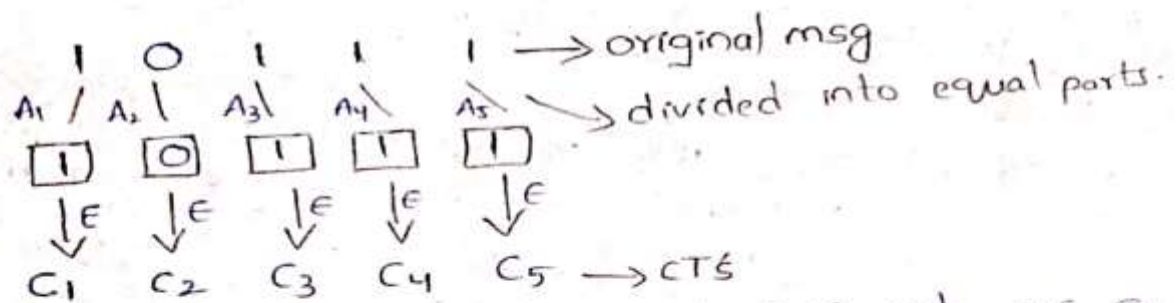 1 0 1 1 1 → original msg
A1 A2 A3 A4 A5 → divided into equal parts.
1 0 1 1 1
↓E ↓E ↓E ↓E ↓E
C1 C2 C3 C4 C5 → CTS